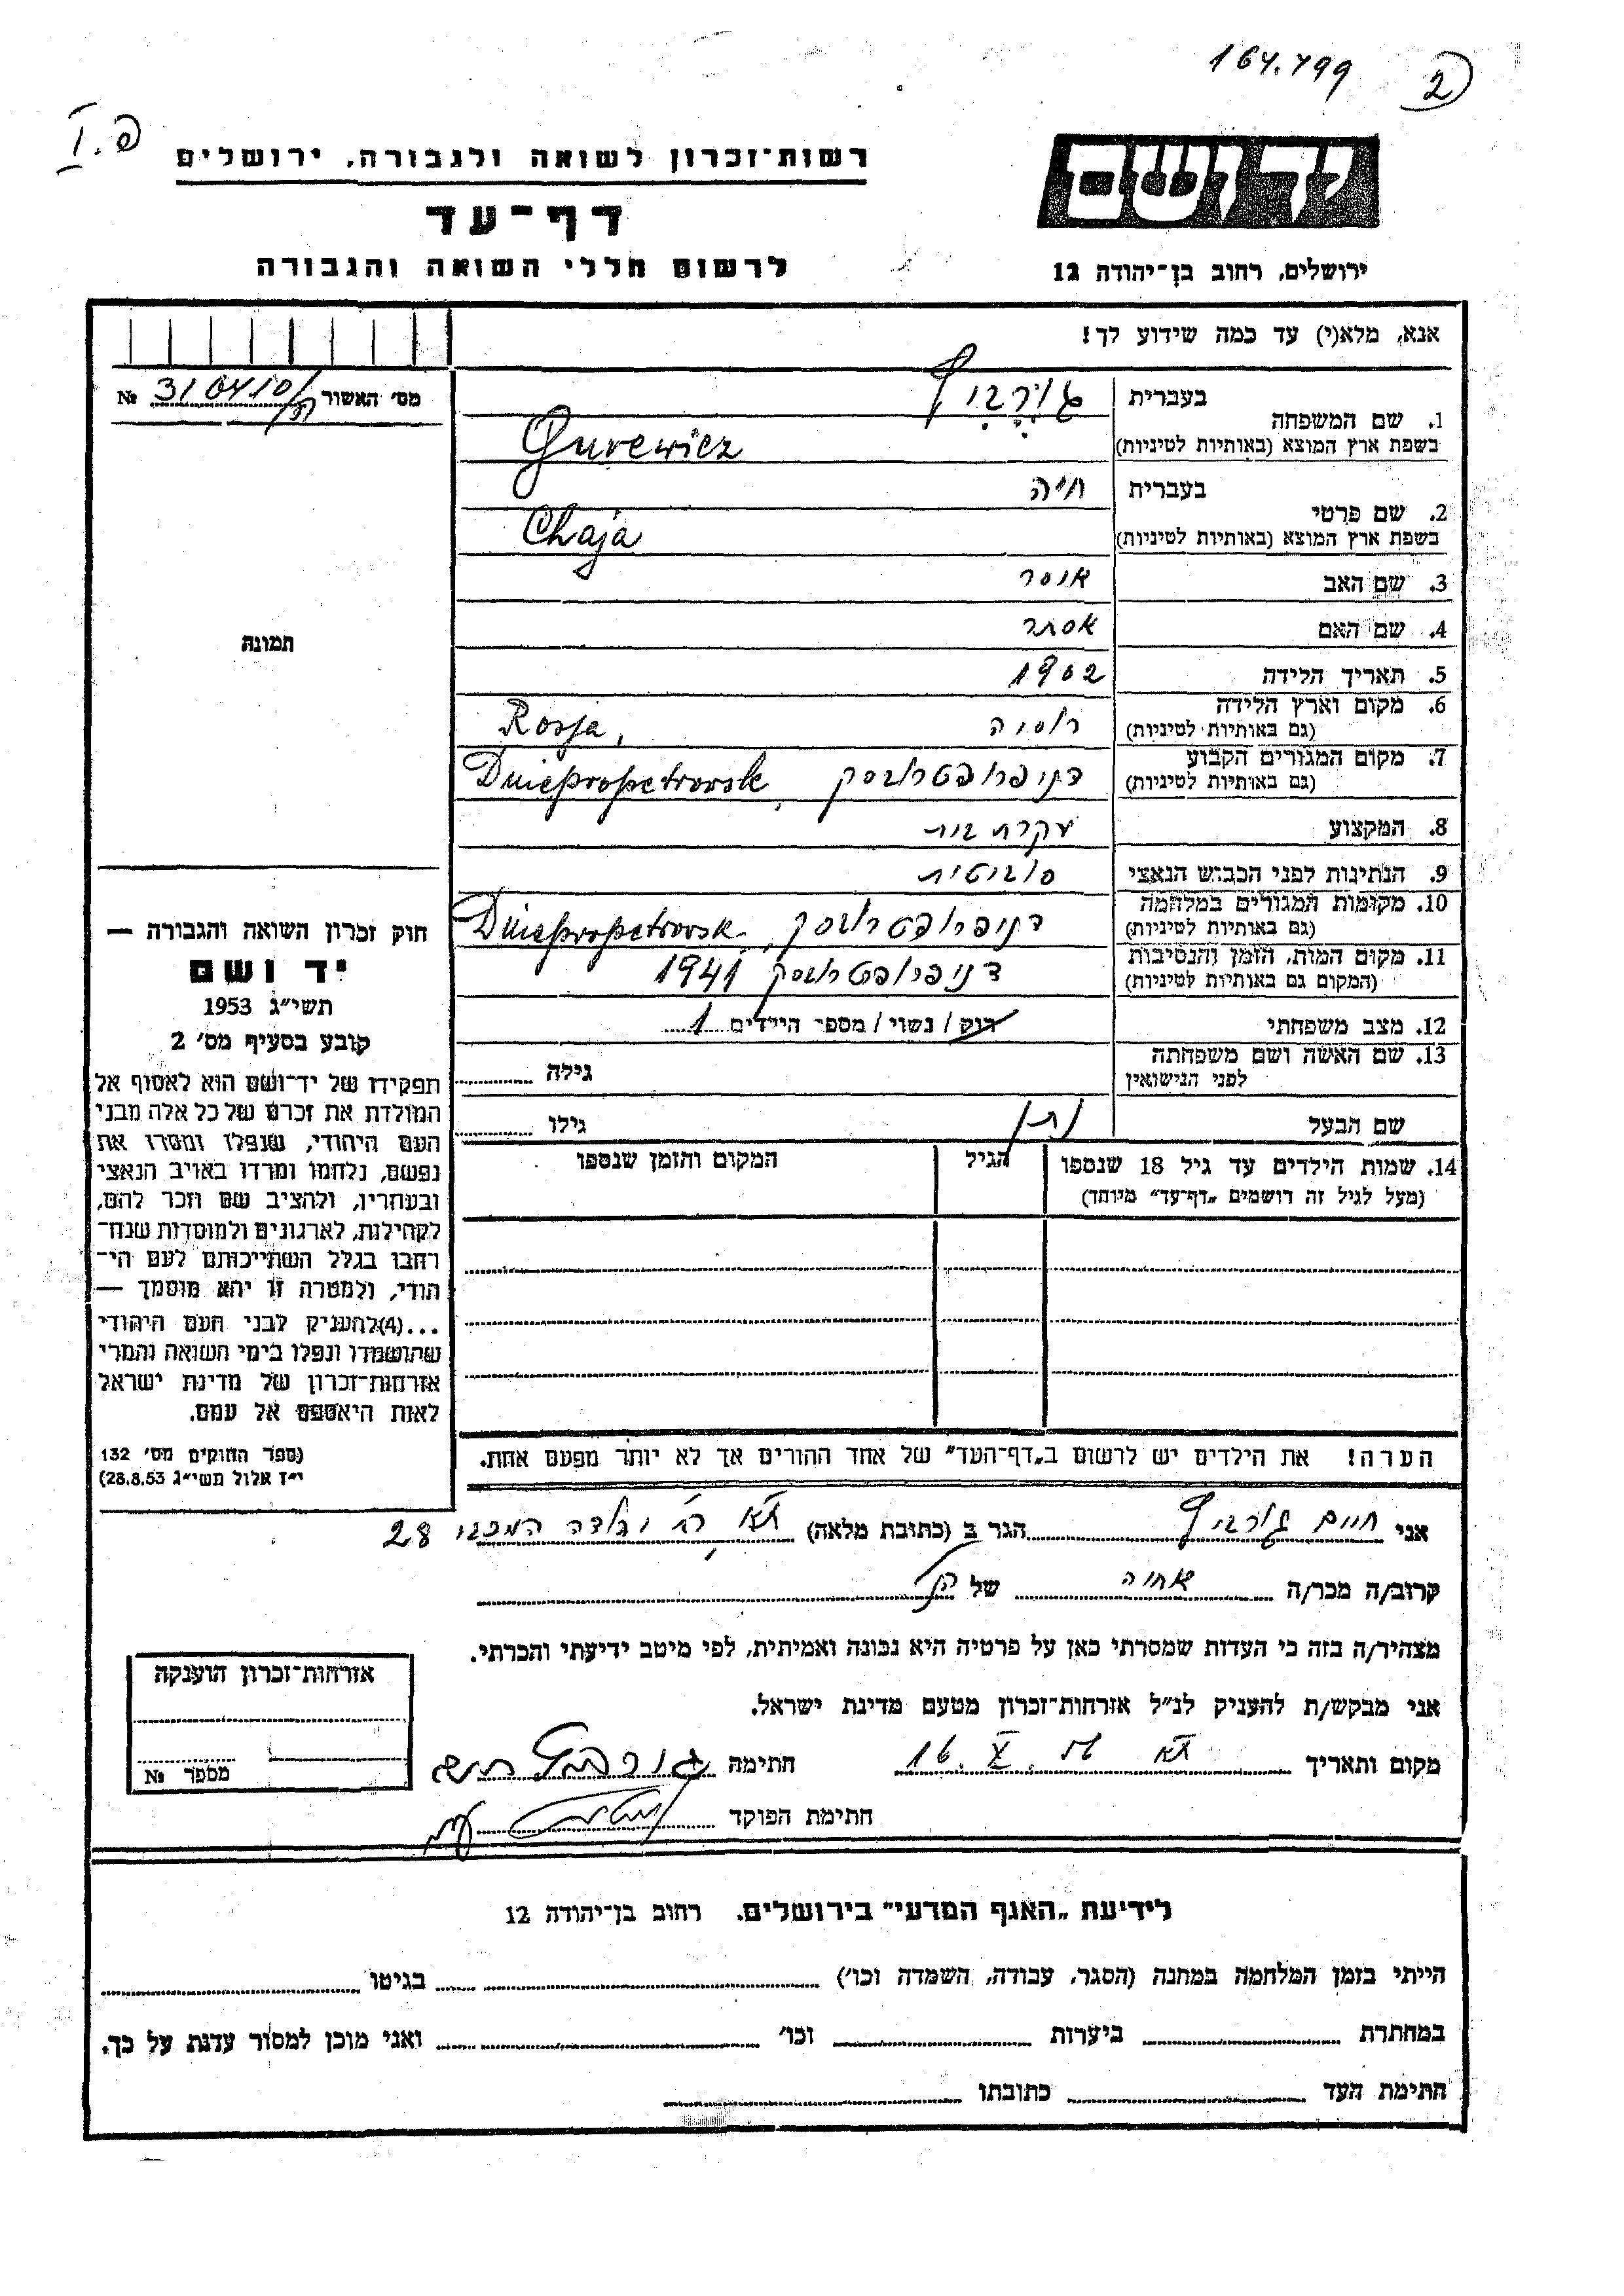 164.799 2
I.פ
יד ושם
רשות־זכרון לשואה ולגבורה, ירושלים
דף־עד
לרשום חללי השואה והגבורה
ירושלים, רחוב בן־יהודה 12
אנא, מלא(י) עד כמה שידוע לך!
מס' האשור № 310410/
1. שם המשפחה
בעברית גורביץ
בשפת ארץ המוצא (באותיות לטיניות) Gurewicz
2. שם פרטי
בעברית חיה
בשפת ארץ המוצא (באותיות לטיניות) Chaja
3. שם האב אוסר
4. שם האם אסתר
5. תאריך הלידה 1902
6. מקום וארץ הלידה רוסיה Rosja,
(גם באותיות לטיניות)
7. מקום המגורים הקבוע דניפרופטרובסק Dniepropetrovsk
(גם באותיות לטיניות)
8. המקצוע עקרת בית
9. הנתינות לפני הכבוש הנאצי סוביטית
10. מקומות המגורים במלחמה דניפרופטרובסק Dniepropetrovsk
(גם באותיות לטיניות)
11. מקום המות, הזמן והנסיבות דניפרופטרובסק 1941
(המקום גם באותיות לטיניות)
12. מצב משפחתי רוק / נשוי / מספר הילדים 1
13. שם האשה ושם משפחתה גילה
לפני הנישואין
שם הבעל נתן גילו
14. שמות הילדים עד גיל 18 שנספו הגיל המקום והזמן שנספו
(מעל לגיל זה רושמים „דף־עד" מיוחד)
הערה! את הילדים יש לרשום ב„דף־העד" של אחד ההורים אך לא יותר מפעם אחת.
תמונה
חוק זכרון השואה והגבורה —
יד ושם
תשי״ג 1953
קובע בסעיף מס' 2
תפקידו של יד־ושם הוא לאסוף אל
המולדת את זכרם של כל אלה מבני
העם היהודי, שנפלו ומסרו את
נפשם, נלחמו ומרדו באויב הנאצי
ובעוזריו, ולהציב שם וזכר להם,
לקהילות, לארגונים ולמוסדות שנח־
רחבו בגלל השתייכותם לעם הי־
הודי, ולמטרה זו יהא מוסמך —
...(4)להעניק לבני העם היהודי
שהושמדו ונפלו בימי השואה והמרי
אזרחות־זכרון של מדינת ישראל
לאות היאספם אל עמם.
(ספר החוקים מס' 132
י״ז אלול תשי״ג 28.8.53)
אני חיים גורביץ הגר ב (כתובת מלאה) ת״א יהודה המכבי 28
קרוב/ה מכר/ה אחיה של הנ״ל
מצהיר/ה בזה כי העדות שמסרתי כאן על פרטיה היא נכונה ואמיתית, לפי מיטב ידיעתי והכרתי.
אני מבקש/ת להעניק לנ״ל אזרחות־זכרון מטעם מדינת ישראל.
מקום ותאריך ת״א 16. X. 56 חתימה גורביץ חיים
חתימת הפוקד
אזרחות־זכרון הוענקה
מספר №
לידיעת „האגף המדעי" בירושלים, רחוב בן־יהודה 12
הייתי בזמן המלחמה במחנה (הסגר, עבודה, השמדה וכו') בגיטו
במחתרת ביערות וכו' ואני מוכן למסור עדות על כך.
חתימת העד כתובתו